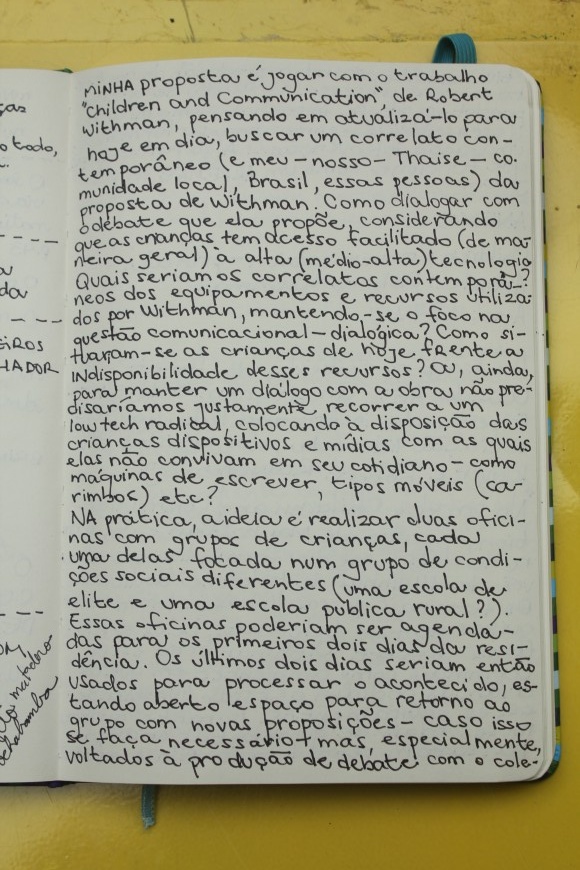 MINHA proposta é jogar com o trabalho
"Children and Communication", de Robert
Withman, pensando em atualizá-lo para
hoje em dia, buscar um correlato con-
temporâneo (e meu – nosso – Thaise – co-
munidade local, Brasil, essas pessoas) da
proposta de Withman. Como dialogar com
o debate que ela propõe, considerando
que as crianças tem acesso facilitado (de ma-
neira geral) à alta (médio-alta) tecnologia?
Quais seriam os correlatos contemporâ-
neos dos equipamentos e recursos utiliza-
dos por Withman, mantendo-se o foco na
questão comunicacional – dialógica? Como si-
tuam-se as crianças de hoje frente a
indisponibilidade desses recursos? Ou, ainda,
para manter um diálogo com a obra não pre-
cisaríamos justamente recorrer a um
low tech radical, colocando à disposição das
crianças dispositivos e mídias com as quais
elas não convivam em seu cotidiano – como
máquinas de escrever, tipos móveis (ca-
rimbos) etc?
NA prática, a ideia é realizar duas ofici-
nas com grupos de crianças, cada
uma delas focada num grupo de condi-
ções sociais diferentes (uma escola de
elite e uma escola pública rural?).
Essas oficinas poderiam ser agenda-
das para os primeiros dois dias da resi-
dência. Os últimos dois dias seriam então
usados para processar o acontecido, es-
tando aberto espaço para retorno ao
grupo com novas proposições – caso isso
se faça necessário – mas, especialmente,
voltados à produção de debate com o cole-